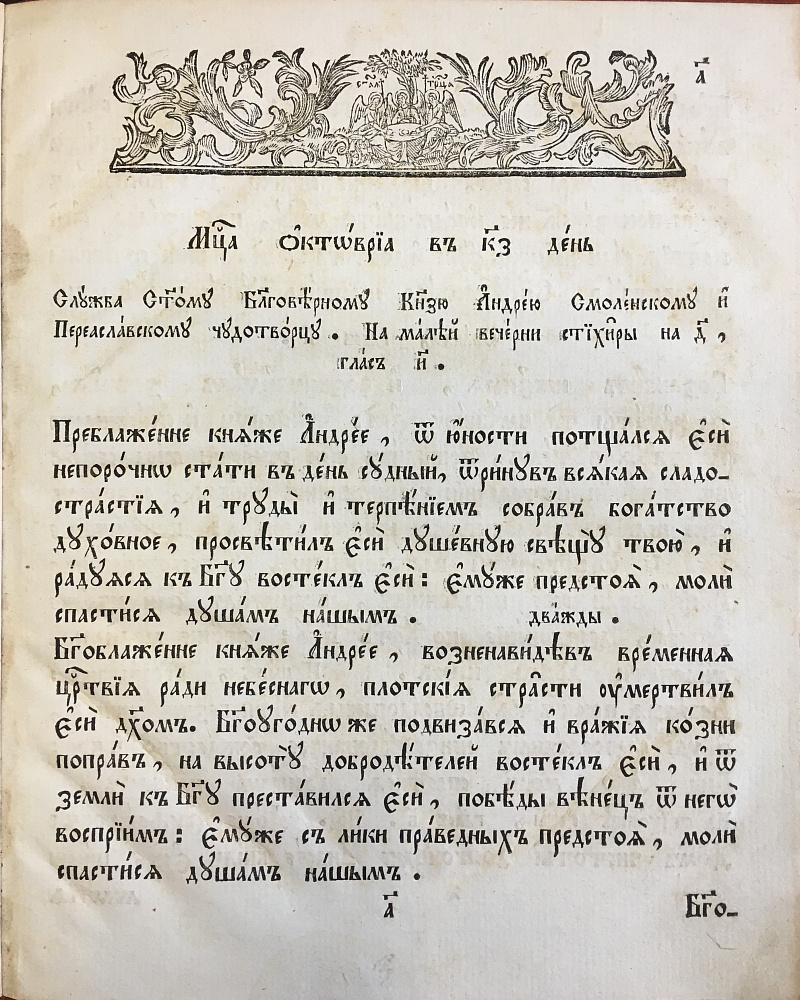 а҃
ст҃аѧ трⷪ҇ца
Мцⷭ҇а ѻ҆ктѡ́врїа въ к҃з де́нь
Слꙋ́жба Ст҃о́мꙋ Бл҃говѣ́рномꙋ Кн҃зю А҆ндре́ю Смоле́нскомꙋ и҆
Переасла́вскомꙋ чꙋдотво́рцꙋ. На ма́лѣй вече́рни стїхи̑ры на д҃,
гла́съ и҃.
Преблаже́нне кнѧ́же А҆ндре́е, ѿ ю҆́ности потща́лсѧ є҆сѝ
непоро́чнѡ ста́ти въ де́нь сꙋ́дный, ѿри́нꙋвъ всѧ́каѧ сладо-
стра́стїѧ, и҆ трꙋды̀ и҆ терпѣ́нїемъ собра́въ бога́тство
дꙋхо́вное, просвѣти́лъ є҆сѝ дꙋше́внꙋю свѣщꙋ̀ твою̀, и҆
ра́дꙋѧсѧ къ Бг҃ꙋ восте́клъ є҆сѝ: є҆мꙋ́же предстоѧ̀, молѝ
спасти́сѧ дꙋша́мъ на́шымъ. два́жды.
Бг҃облаже́нне кнѧ́же А҆ндре́е, возненави́дѣвъ вре́меннаѧ
црⷭ҇твїѧ ра́ди небе́снагѡ, плотскі́ѧ стра̑сти ᲂу҆мертви́лъ
є҆сѝ дх҃омъ. Бг҃оꙋго́днѡ же подвиза́всѧ и҆ вра́жїѧ ко́зни
попра́въ, на высотꙋ̀ добродѣ́телей восте́клъ є҆сѝ, и҆ ѿ
землѝ къ Бг҃ꙋ преста́вилсѧ є҆сѝ, побѣ́ды вѣне́цъ ѿ негѡ̀
воспрїи́мъ: є҆мꙋ́же съ ли́ки пра́ведныхъ предстоѧ̀, молѝ
спасти́сѧ дꙋша́мъ на́шымъ.
а҃ Бг҃о-